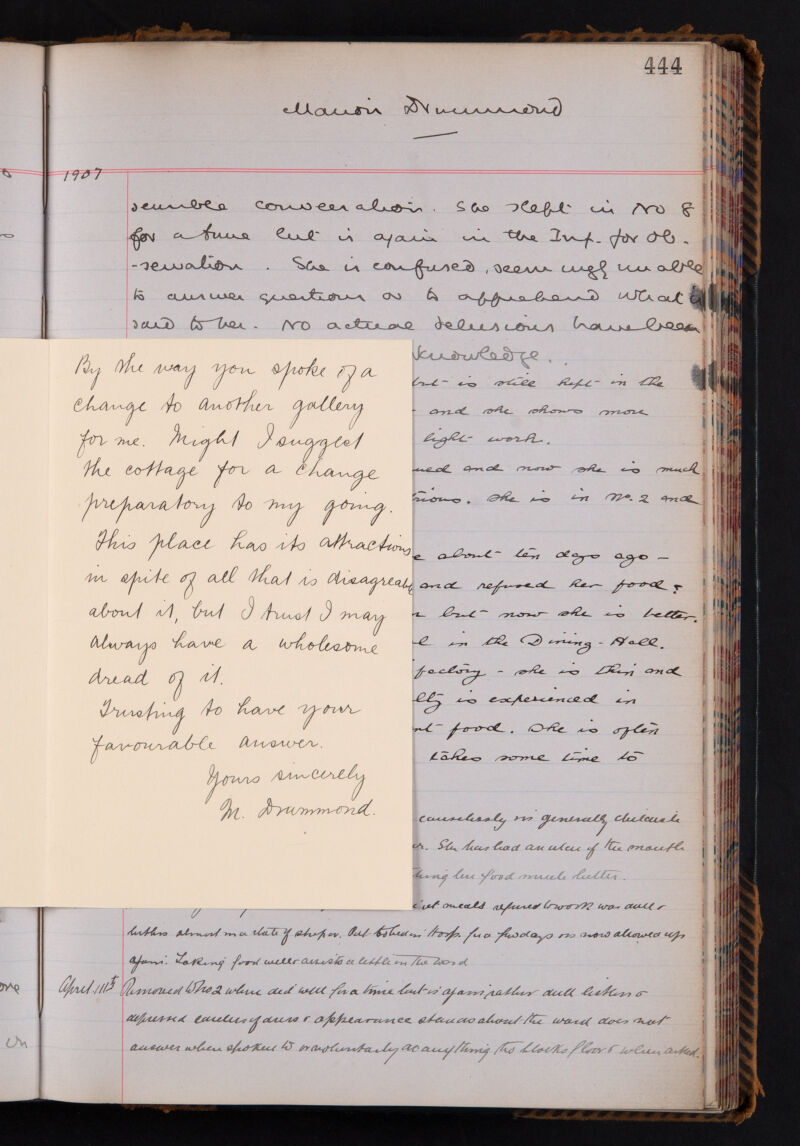 444
Marion Drummond
1907
sensible conversation. She slept in No 8
for a time but is again in the Inf. for ob-
-servation. She is confused, seemingly unable
to answer questions or to apprehend what is
said to her. No actual delusions have been
knowledge.
but is still kept in the
and she shows more
light work.
and now she is much
She is in No. 2 and
about ten days ago -
and refused her food &
but now she is better.
in the Dining-Hall.
she is thin and
is experienced in
food. She is often
takes some time to
causelessly is generally
She has had an ulcer of the mouth
food much better.
meals refused to work was dull &
listless almost in a state of stupor. Put to bed in Hosp. for a few days is now allowed up
again. Taking food well assists a little in the ward
April 11th Removed to No 2 where did well for a time but is again rather dull listless &
depressed careless of dress & appearance stands about the ward does not
answer when spoken to or voluntarily do anything tho blocks floor when asked.
By the way you spoke of a
change to another gallery
for me. Might I suggest
the cottage for a change
preparatory to my going.
This place has its attractions
in spite of all that is disagreable
about it, but I trust I may
always have a wholesome
dread of it.
Trusting to have your
favourable answer.
Yours sincerely
M. Drummond.